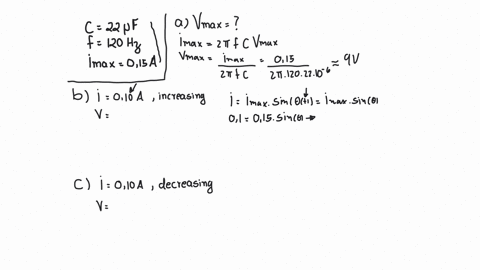 C = 22 µF
f = 120 Hz
imax = 0,15 A
a) Vmax = ?
imax = 2π f C Vmax
Vmax = imax / 2π f C = 0,15 / 2π.120.22.10^-6 ≈ 9V
b) i = 0,10 A , increasing
V =
i = imax. sin(θ(t)) = imax. sin(θ)
0,1 = 0,15. sin(θ) →
c) i = 0,10 A , decreasing
V =